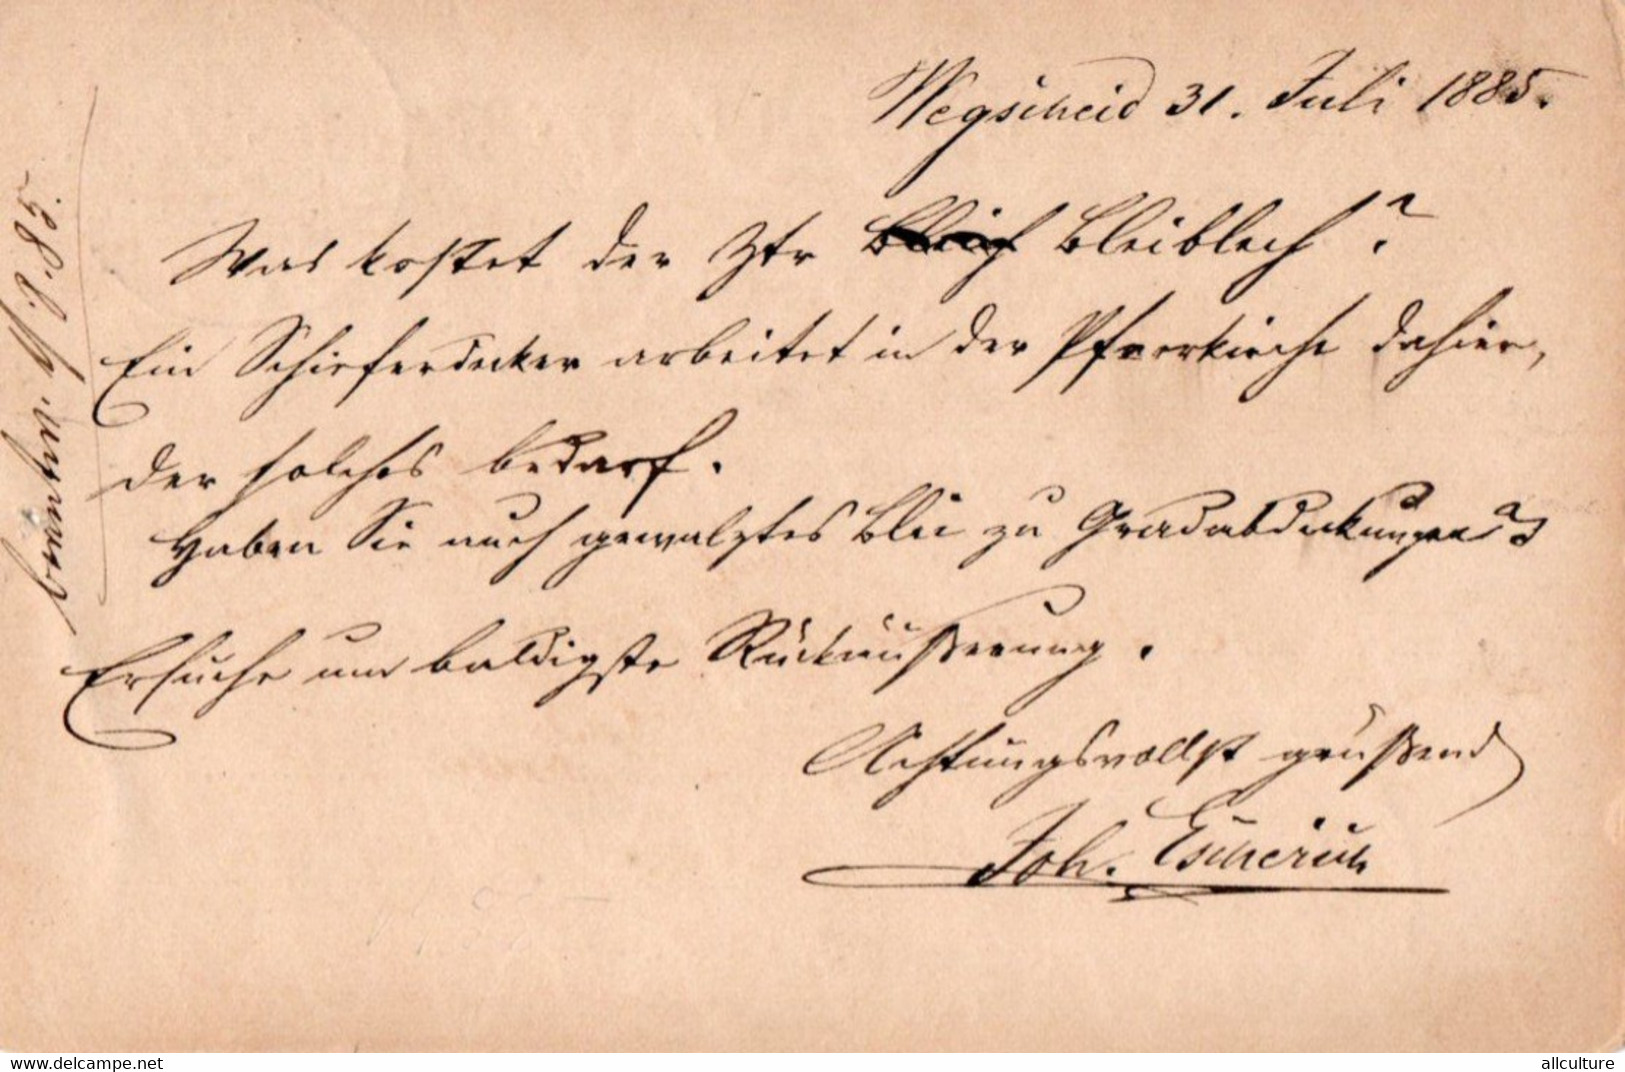 Wegscheid 31. Juli 1885.
Was kostet der Ztr Bleiblech?
Ein Schieferdecker arbeitet in der Pfarrkirche dahier,
der solches bedarf.
Haben Sie auch gewalztes Blei zu Gradabdeckungen?
Ersuche um baldigste Rückäußerung.
Achtungsvollst grüßend
Joh. Escherich
beantw. 4/8.85.
www.delcampe.net
allculture